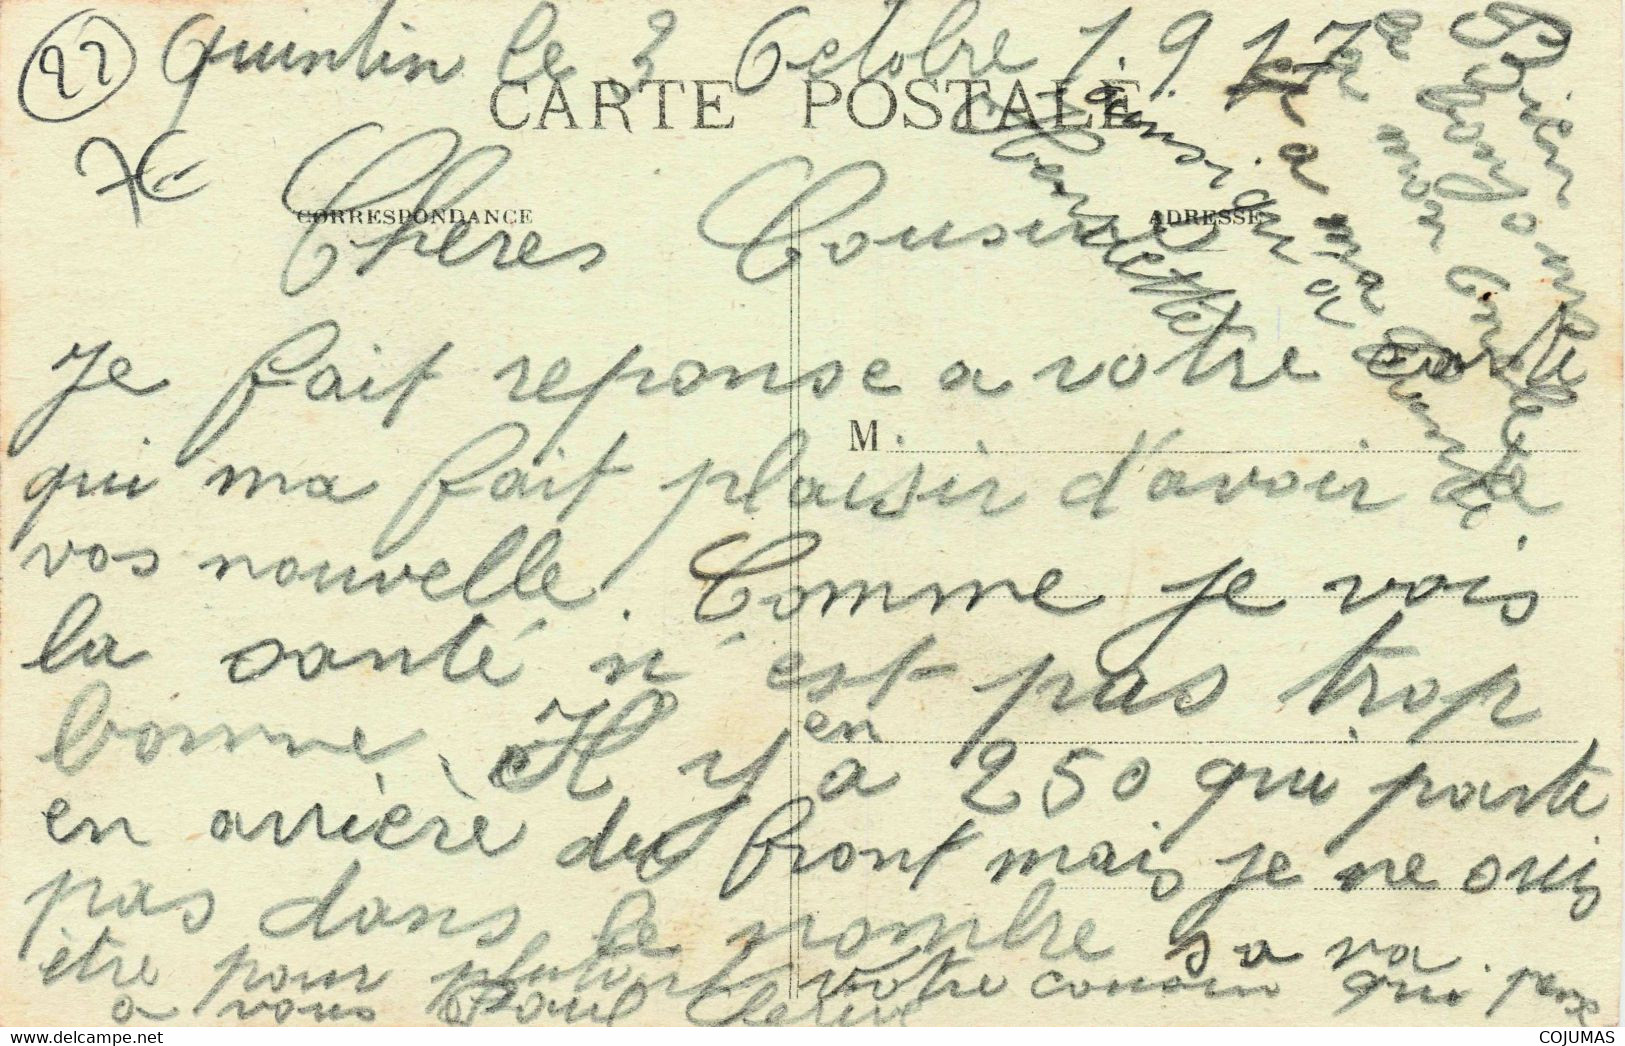 22
Quintin le 3 Octobre 1917
CARTE POSTALE
7€
Chères Cousine
CORRESPONDANCE
ADRESSE
Je fait reponse a votre carte
M.
qui ma fait plaisir d'avoir de
vos nouvelle. Comme je vois
la santé n'est pas trop
bonne. Il y en a 250 qui parte
en arrière du front mais je ne suis
pas dans le nombre sa va
être pour plutart votre cousin qui pense
a vous Paul
Bien
le bonjour
a mon oncle
a ma tante
ainsi qu'a
COJUMAS